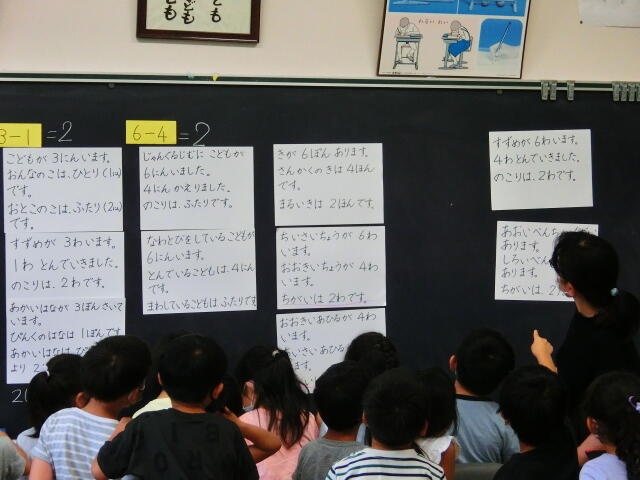 とも
ども
とも
わるい れい
3-1
=2
6-4
=2
こどもが 3にん います。
おんなのこは、ひとり(1にん)
です。
おとこのこは、ふたり(2にん)
です。
すずめが 3わ います。
1わ とんでいきました。
のこりは、2わです。
あかいはなが 3ぼん さいて
います。
ぴんくのはなは 1ぽんです。
あかいはなは
より 2
2(
じゃんぐるじむに こどもが
6にんいました。
4にん かえりました。
のこりは、ふたりです。
なわとびをしている こどもが
6にんいます。
とんでいるこどもは、4にん
です。
まわしているこどもは、ふたりです
きが 6ぽん あります。
さんかくの きは 4ほん
です。
まるいきは 2ほんです。
ちいさいちょうが 6わ
います。
おおきいちょうが 4わ
います。
ちがいは 2わです。
おおきいあひるが 4わ
います。
ちいさい あひる
ます。
すずめが 6わ います。
4わ とんでいきました。
のこりは、2わです。
あおいぺん
あります。
しろいぺん
あります。
ちがいは、2